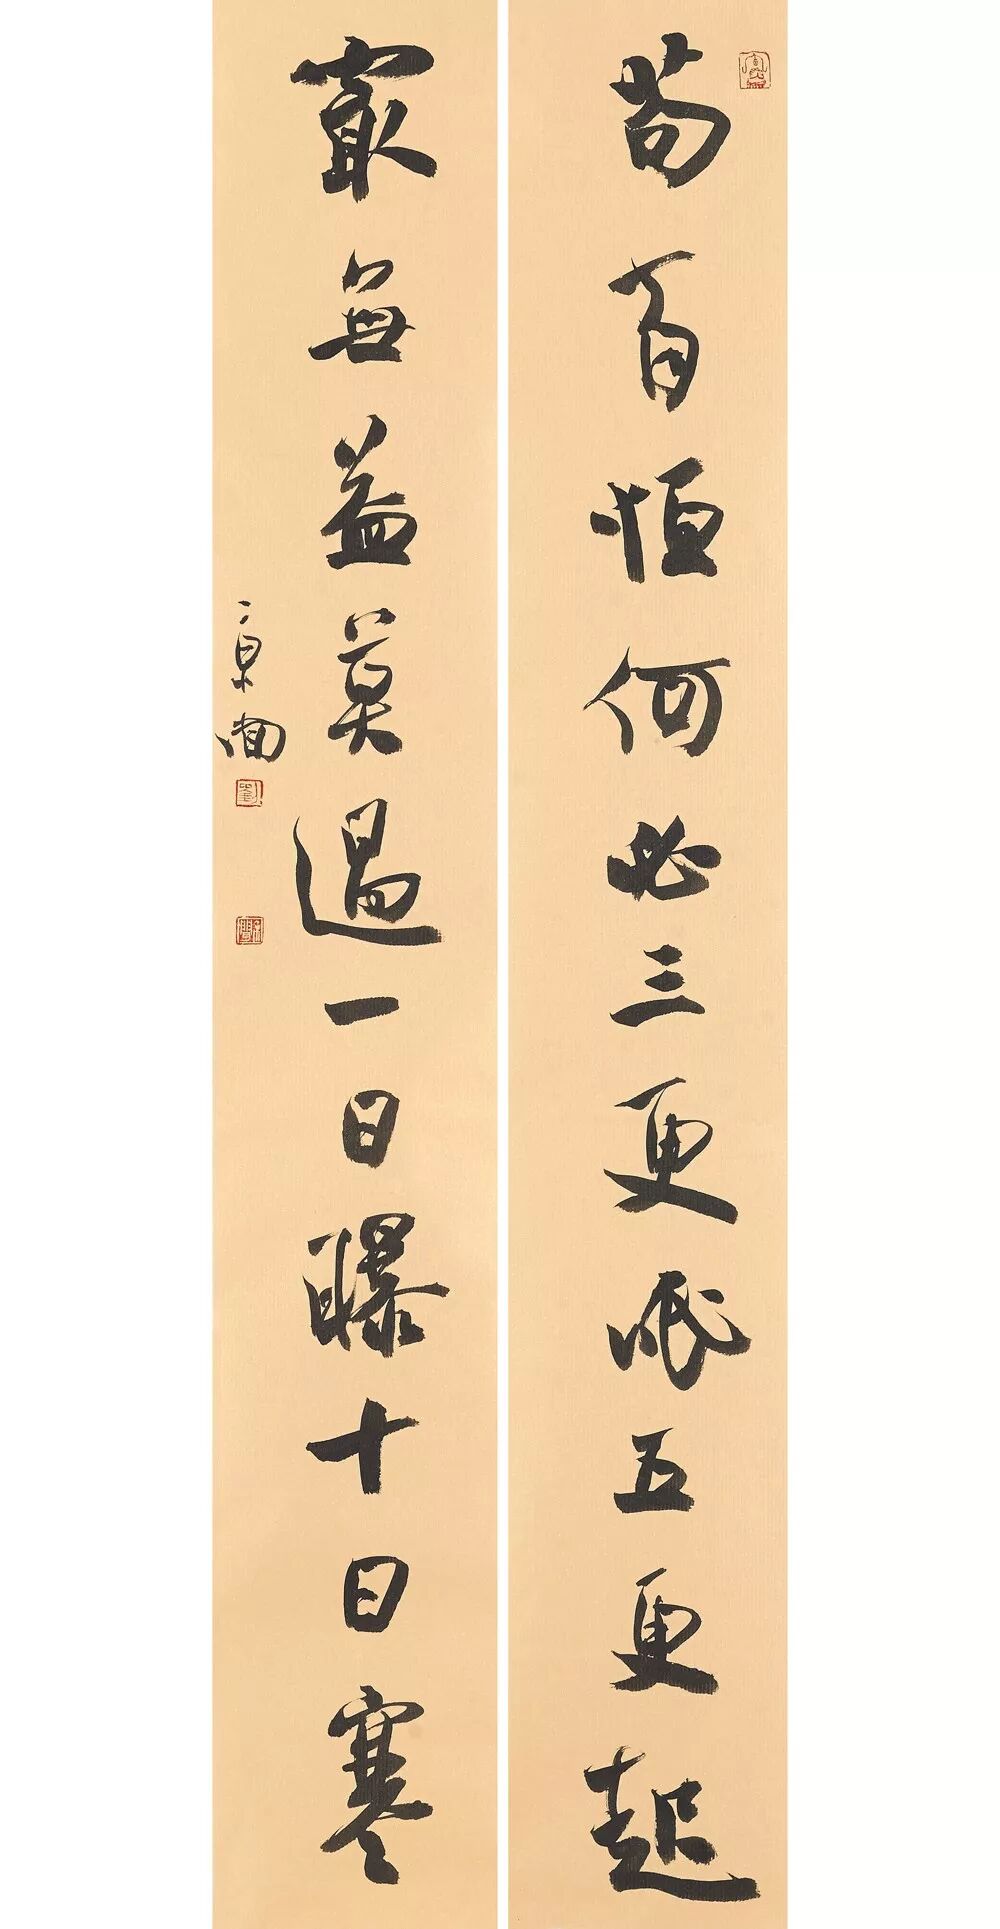 苟有恒何必三更眠五更起
最無益莫過一日曝十日寒